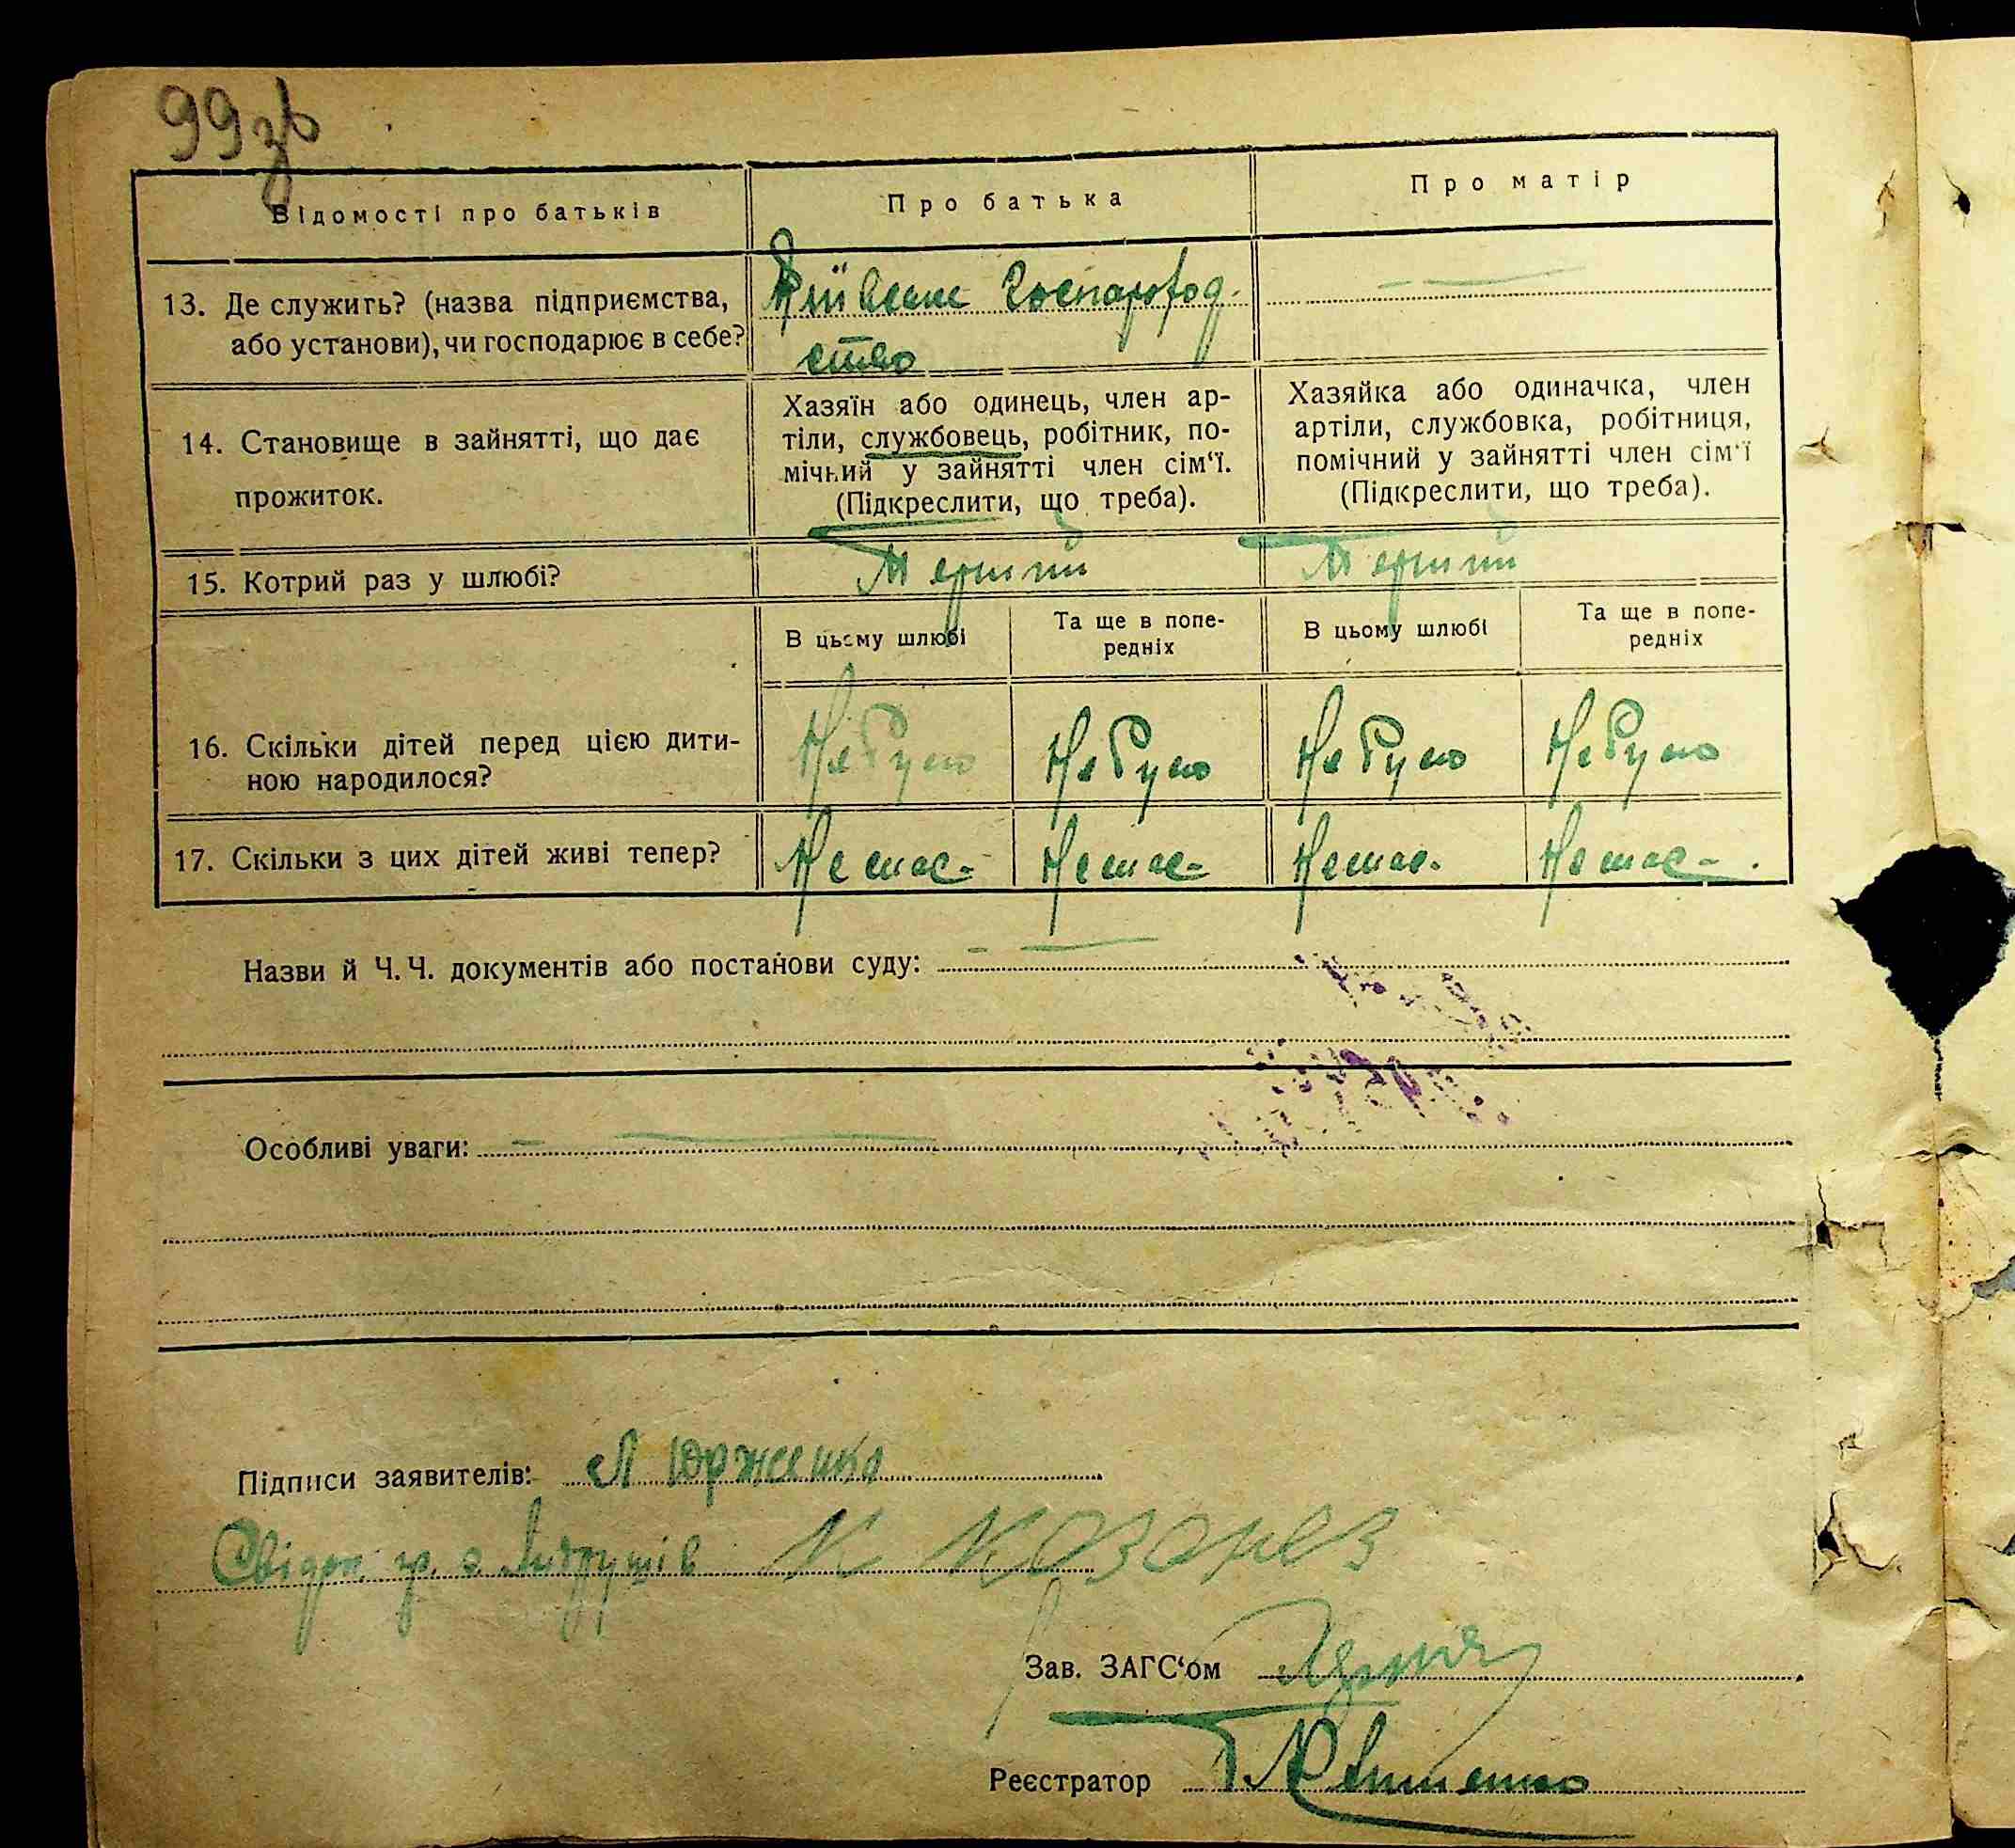 99зв
Відомості про батьків
Про батька
Про матір
13. Де служить? (назва підприємства,
або установи), чи господарює в себе?
господ-
ство
14. Становище в зайнятті, що дає
прожиток.
Хазяїн або одинець, член ар-
тіли, службовець, робітник, по-
мічний у зайнятті член сім‘ї.
(Підкреслити, що треба).
Хазяйка або одиначка, член
артіли, службовка, робітниця,
помічний у зайнятті член сім‘ї
(Підкреслити, що треба).
15. Котрий раз у шлюбі?
Перший
Перший
В цьому шлюбі
Та ще в попе-
редніх
В цьому шлюбі
Та ще в попе-
редніх
16. Скільки дітей перед цією дити-
ною народилося?
Не було
Не було
Не було
Не було
17. Скільки з цих дітей живі тепер?
Немає
Немає
Немає
Немає
Назви й Ч. Ч. документів або постанови суду:
Особливі уваги:
Підписи заявителів:
Зав. ЗАГС‘ом
Реєстратор